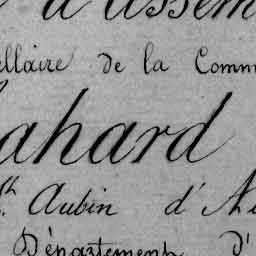 d'assem
ellaire de la Comm
ahard
Aubin d'
Département d'